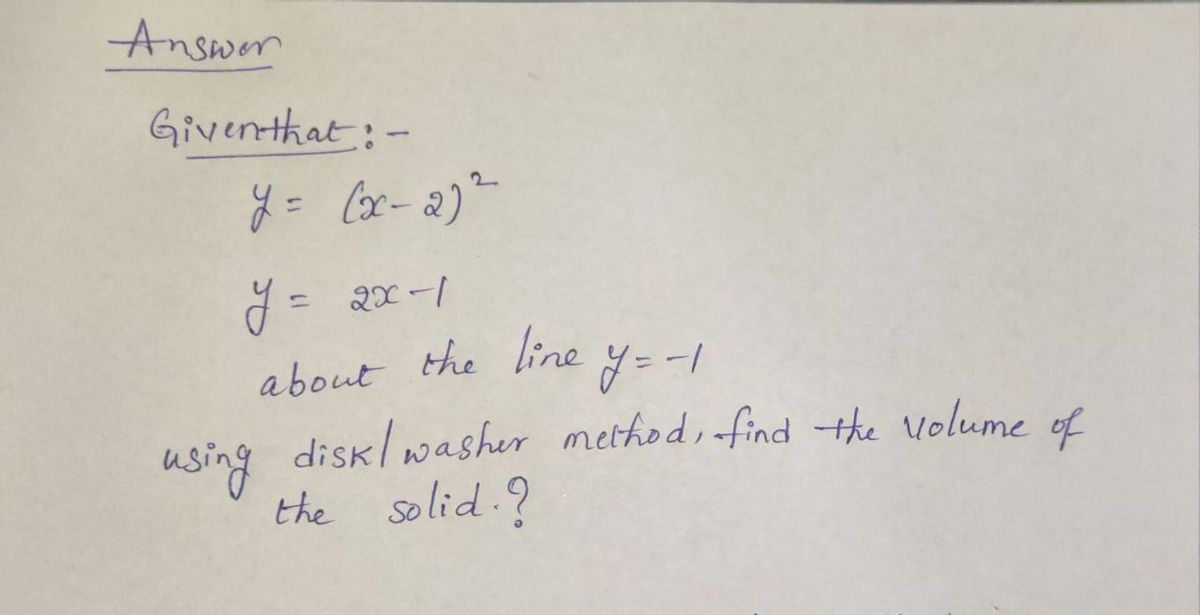 Answer
Giventhat :-
y = (x-2)²
y = 2x-1
about the line y=-1
using disk/washer method, find the volume of
the solid.?